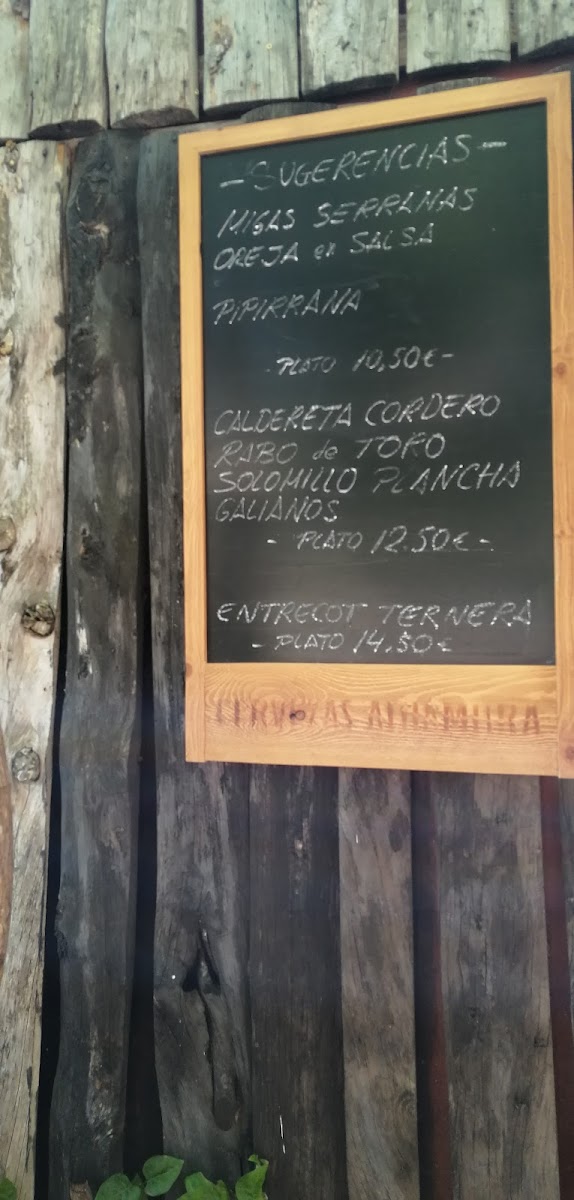 - SUGERENCIAS -
MIGAS SERRANAS
OREJA en SALSA
PIPIRRANA
- PLATO 10,50€ -
CALDERETA CORDERO
RABO de TORO
SOLOMILLO PLANCHA
GALIANOS
- PLATO 12.50€ -
ENTRECOT TERNERA
- PLATO 14.50€
CERVEZAS ALHAMBRA